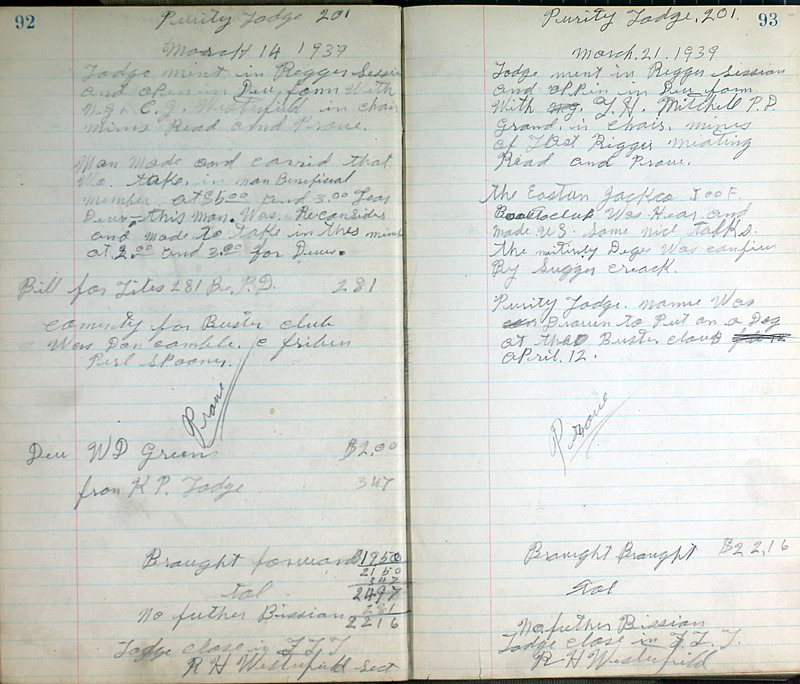 92
Purity Lodge 201
March 14 1939
Lodge ment in Regger Session
and open in Deu form With
N.g. C.J. Westerfield in chair
mins Read and Prove.
Man Made and carrid that
We. take. in man Beneficial
member at $5.00 and 3.00 Feas
Deus - this man. Was. Reconsider
and made to take in thes
at 2.00 and 3.00 for Deus.
Bill for Lites 281 Be. P.D. 281
comenty for Buster club
Was Dan camble. C friben
Perl Spooner.
Prove
Deu W D Green $2.00
from K P. Lodge 347
Braught forward $1950
2150
347
Tol 2497
No futher Bissian 281
2216
Lodge close in F L T
R H Westerfield Sect
93
Purity Lodge, 201.
March, 21, 1939
Lodge ment in Regger Session
and oppen in Deu form.
With J. H. Mitchell P.D.
Grand, in chair, mins
of Last Rigger meating
Read and Prove.
the Eastun Jackco I oo F.
Was Hear and
made US. Some nice talks.
The Deges Was canfiur
By Sugger creack.
Purity Lodge. name Was
Drawn to Put on a Dog
at the Buster cloub
April. 12.
Prove
Braught Braught $22.16
Tol
No futher Bissian
Lodge close in F. L. T.
R H Westerfield